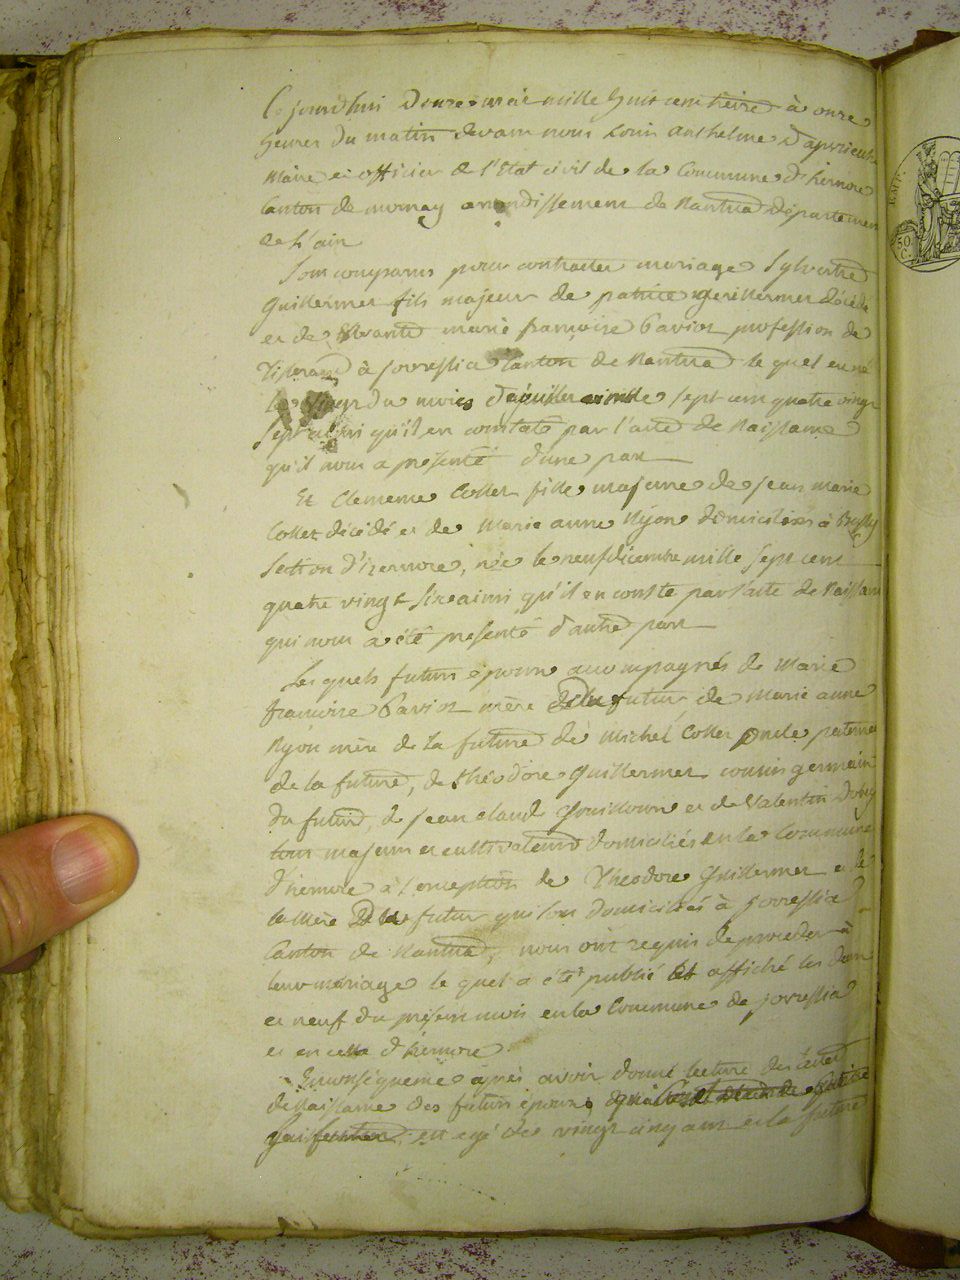 Ce jourdhui douze mai mille huit cent treize à onze
heures du matin devant nous Louis anthelme d'apvrieulx
Maire et officier de l'Etat civil de la Commune d'hernore
Canton de mornay arrondissement de Nantua département
de L'ain
Sont comparus pour contracter mariage Sylvestre
Guillermet fils majeur de patrice guillermet décédé
et de vivante marie françoise Pavioz profession de
Tisserand à sorressia Canton de Nantua le quel est né
le du mois mille sept cent quatre vingt
sept ainsi qu'il en conste par l'acte de Naissance
qu'il nous a présenté d'une part
Et Clemence Collet fille majeure de jean marie
Collet décédé et de Marie anne Nyon domiciliés à
Section d'izernore, née le neuf décembre mille sept cent
quatre vingt size ainsi qu'il en conste par l'acte de Naissance
qui nous a été présenté d'autre part
Les quels futurs époux accompagnés de Marie
françoise Pavioz mère du futur de Marie anne
Nyon mère de la future de Michel Collet oncle paternel
de la future, de théodore Guillermet cousin germain
du futur, de jean claude et de Valentin
tous majeurs et cultivateurs domiciliés en la Commune
d'izernore à l'exception de Théodore Guillermet et de
la Mère du futur qui sont domiciliés à sorressia
Canton de Nantua, nous ont requis de proceder à
leur mariage le quel a été publié et affiché les deux
et neuf du présent mois en la Commune de sorressia
et en celle d'izernore
En conséquence après avoir donné lecture des actes
de Naissance des futurs époux
est agé de vingt cinq ans et la future
50
C.